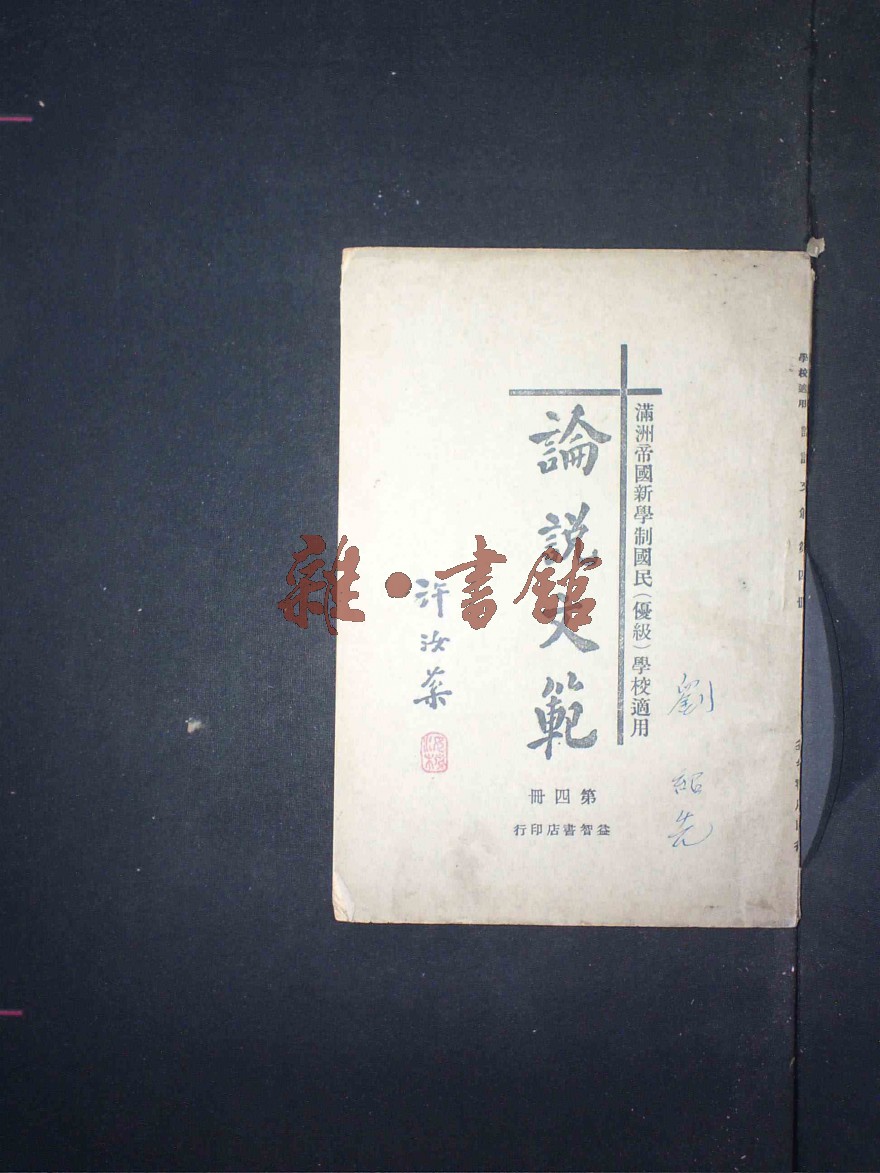 滿洲帝國新學制國民(優級)學校適用
論說文範
許汝棻
第四冊
益智書店印行
劉紹先
雜·書館
學校適用 論說文範 第四冊